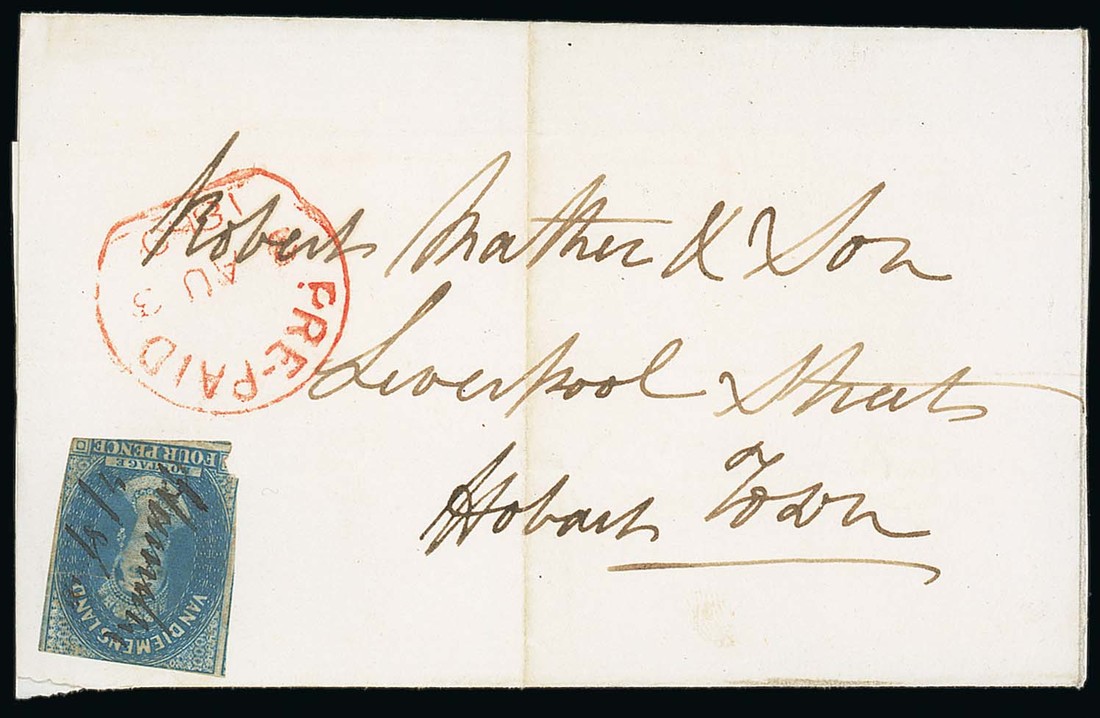 Robert Mather & Son
Liverpool Street
Hobart Town
PRE-PAID
AU 3
FOUR PENCE
POSTAGE
VAN DIEMENS LAND